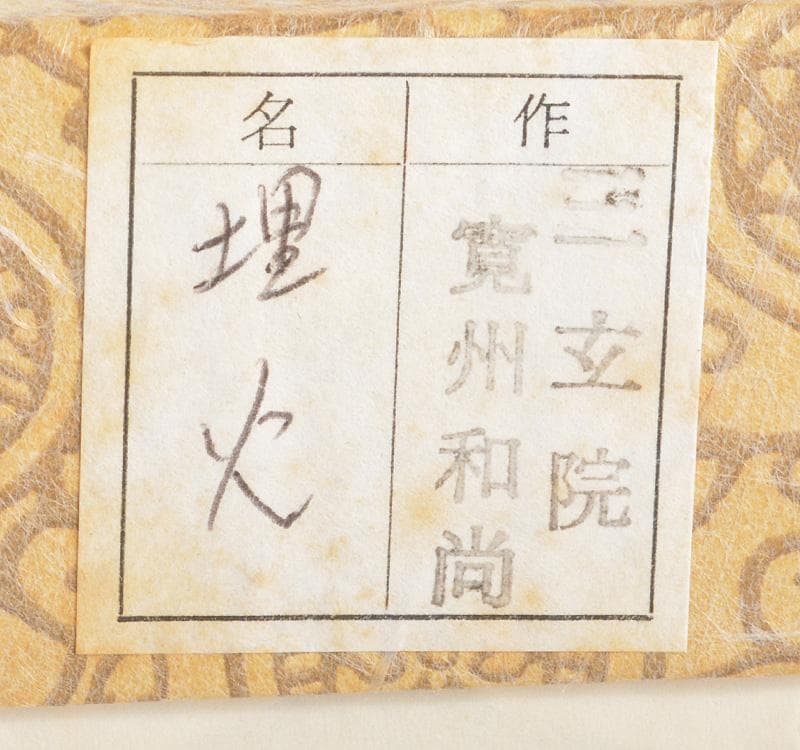 作
三玄院
寛州和尚
名
埋火